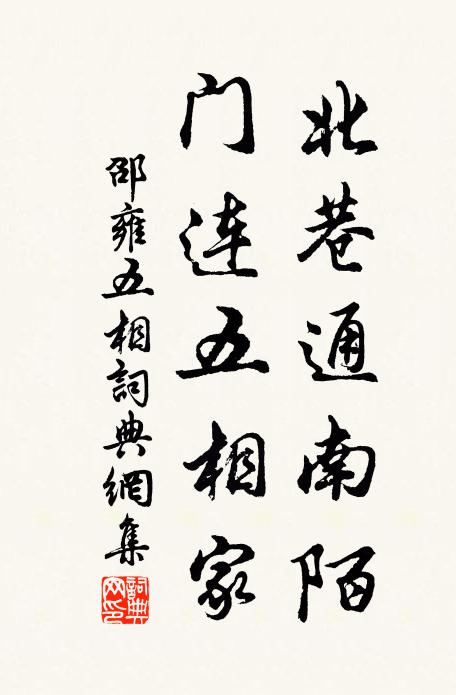 北巷通南陌
门连五相家
邵雍五相詞典網集
詞典网印